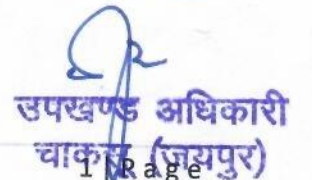 उपखण्ड अधिकारी
चाकसू (जयपुर)
1 | P a g e